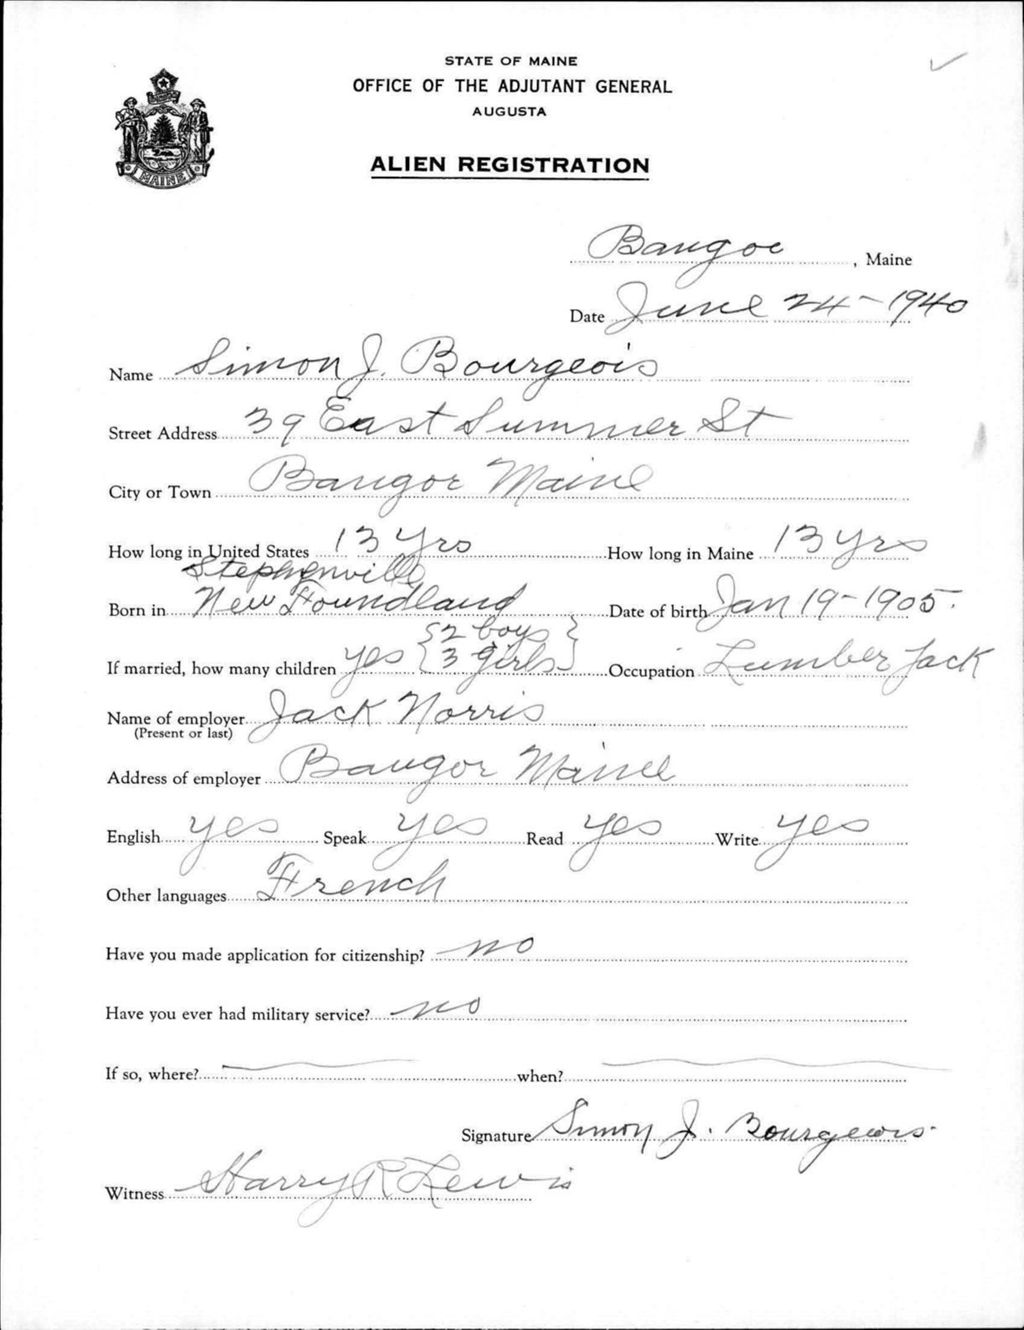 STATE OF MAINE
OFFICE OF THE ADJUTANT GENERAL
AUGUSTA
ALIEN REGISTRATION
MAINE
Bangor, Maine
Date June 24-1940
Name Simon J. Bourgeois
Street Address 39 East Summer St
City or Town Bangor Maine
How long in United States 13 yrs How long in Maine 13 yrs
Stephenville
Born in New Foundland Date of birth Jan 19-1905.
2 boys
If married, how many children yes 3 girls Occupation Lumber Jack
Name of employer Jack Norris
(Present or last)
Address of employer Bangor Maine
English yes Speak yes Read yes Write yes
Other languages French
Have you made application for citizenship? no
Have you ever had military service? no
If so, where? when?
Signature Simon J. Bourgeois
Witness Harry R Lewis